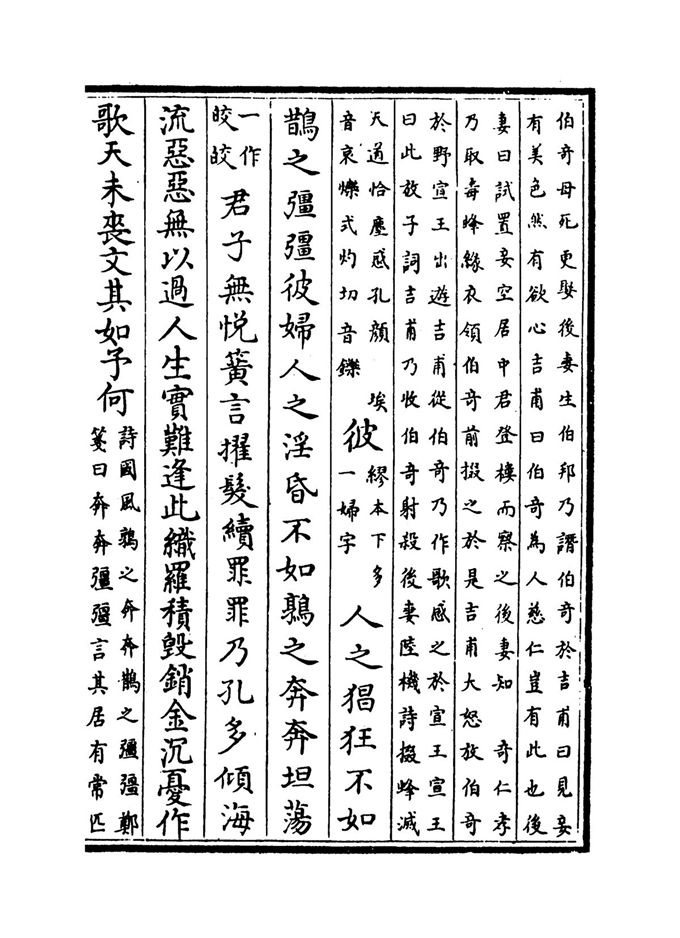 伯奇母死更娶後妻生伯邦乃譖伯奇於吉甫曰見妾
有美色然有欲心吉甫曰伯奇為人慈仁豈有此也後
妻曰試置妾空居中君登樓而察之後妻知 奇仁孝
乃取毒蜂緣衣領伯奇前掇之於是吉甫大怒放伯奇
於野宣王出遊吉甫從伯奇乃作歌感之於宣王宣王
曰此放子詞吉甫乃收伯奇射殺後妻陸機詩掇蜂滅
天道恰塵惑孔顔 埃
音哀爍式灼切音鑠
彼
繆本下多
一婦字
人之猖狂不如
鵲之彊彊彼婦人之淫昏不如鶉之奔奔坦蕩
一作
皎皎
君子無悅簧言擢髮續罪罪乃孔多傾海
流惡惡無以過人生實難逢此織羅積毁銷金沉憂作
歌天未喪文其如予何
詩國風鶉之奔奔鵲之彊彊鄭
箋曰奔奔彊彊言其居有常匹